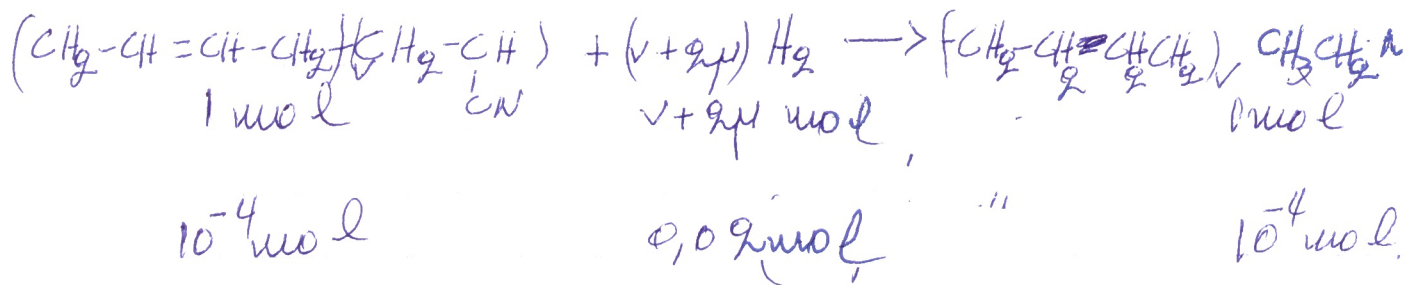 (CH₂-CH=CH-CH₂)ᵥ(CH₂-CH) + (ν+2μ) H₂ → (-CH₂-CH₂-CH₂CH₂)ᵥ CH₂CH₂
CN
1 mol ν+2μ mol 1 mol
10⁻⁴ mol 0,02 mol 10⁻⁴ mol